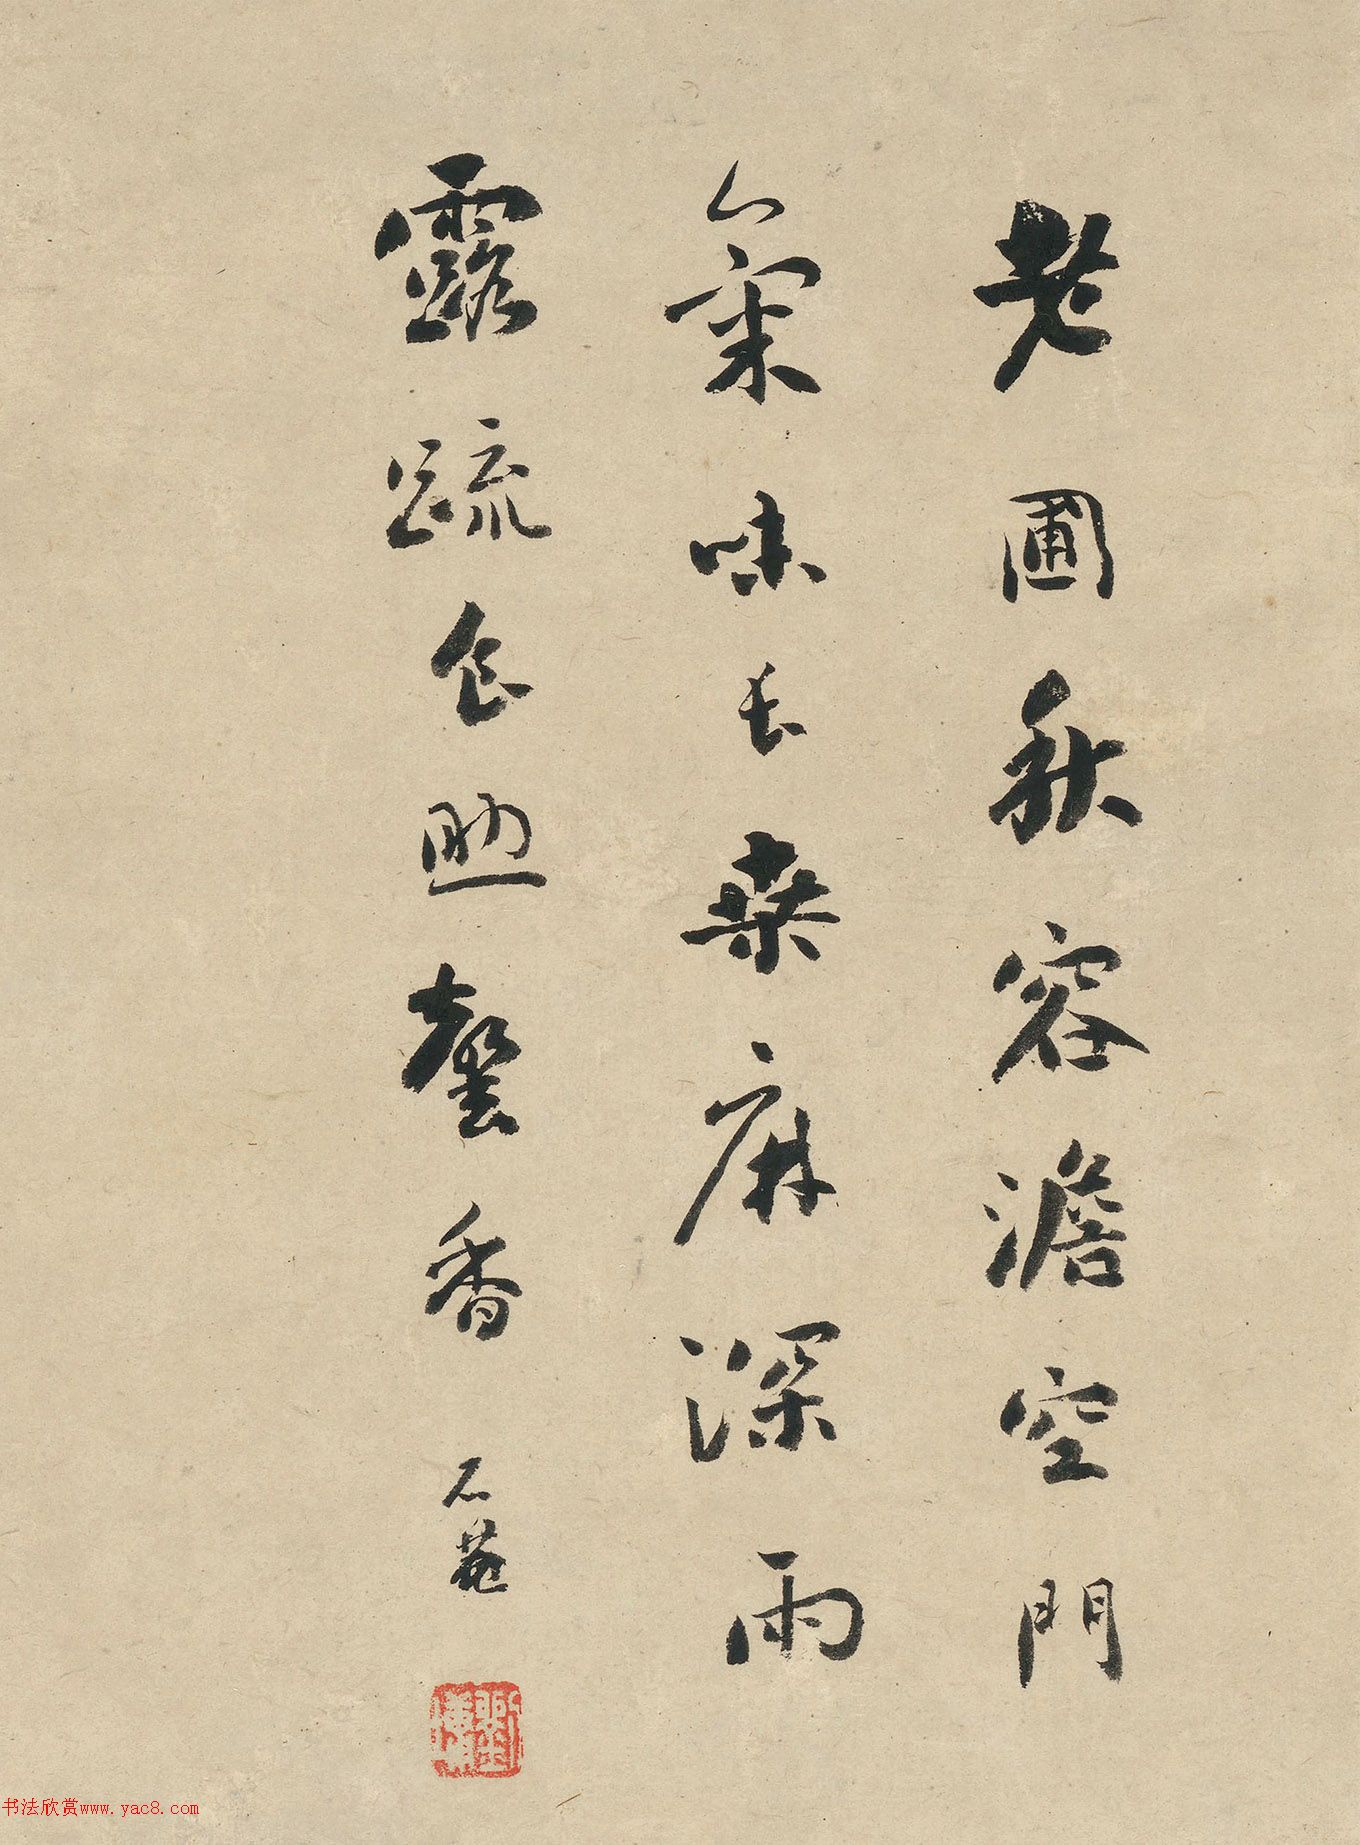 老圃秋容澹空門
氣味長桑麻深雨
露蹏食助馨香
石菴
書法欣赏www.yac8.com